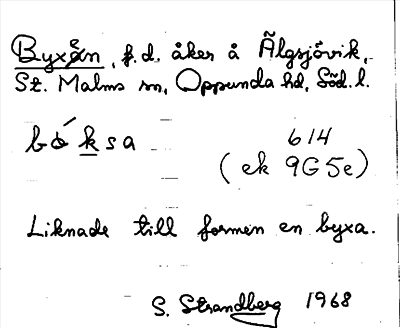 Byxan, f.d. åker å Älgsjövik,
St. Malms sn, Oppunda hd, Söd. l.
614
(ek 9G5e)
Liknade till formen en byxa.
S. Strandberg 1968